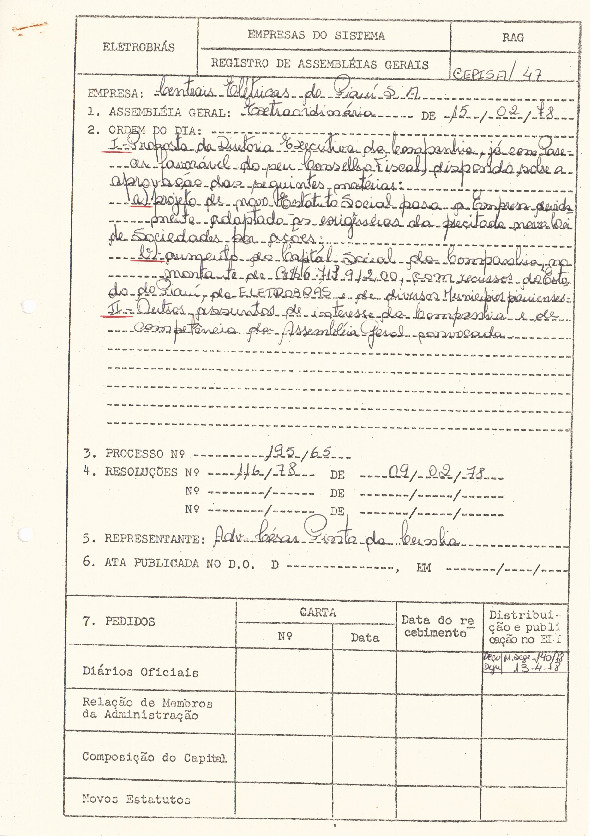 ELETROBRÁS
EMPRESAS DO SISTEMA
RAG
REGISTRO DE ASSEMBLÉIAS GERAIS
CEPISA/47
EMPRESA: Centrais Elétricas do Piauí S A
1. ASSEMBLÉIA GERAL: Extraordinária DE 15/02/78
2. ORDEM DO DIA:
I - Proposta da Diretoria Executiva da Companhia, já com Pare-
cer favorável do seu Conselho Fiscal, dispondo sobre a
aprovação das seguintes matérias:
a) projeto de novo Estatuto Social para a Empresa devida-
mente adaptado às exigências da precitada nova Lei
de Sociedades por ações;
b) aumento do Capital Social da Companhia, no
montante de com recursos do Esta
do do Piauí, da ELETROBRÁS e de diversos Municípios piauienses.
II - Outros assuntos de interesse da Companhia e de
Competência da Assembléia Geral convocada
3. PROCESSO Nº 195/65
4. RESOLUÇÕES Nº 116/78 DE 09/02/78
Nº -------/------ DE -----/-----/-----
Nº -------/------ DE -----/-----/-----
5. REPRESENTANTE: Adv. César Pinto da Cunha
6. ATA PUBLICADA NO D.O. D --------------, EM -------/----/----
7. PEDIDOS
CARTA
Nº
Data
Data do re
cebimento
Distribui-
ção e publi
cação no
Diários Oficiais
13.4.78
Relação de Membros
da Administração
Composição do Capital
Novos Estatutos